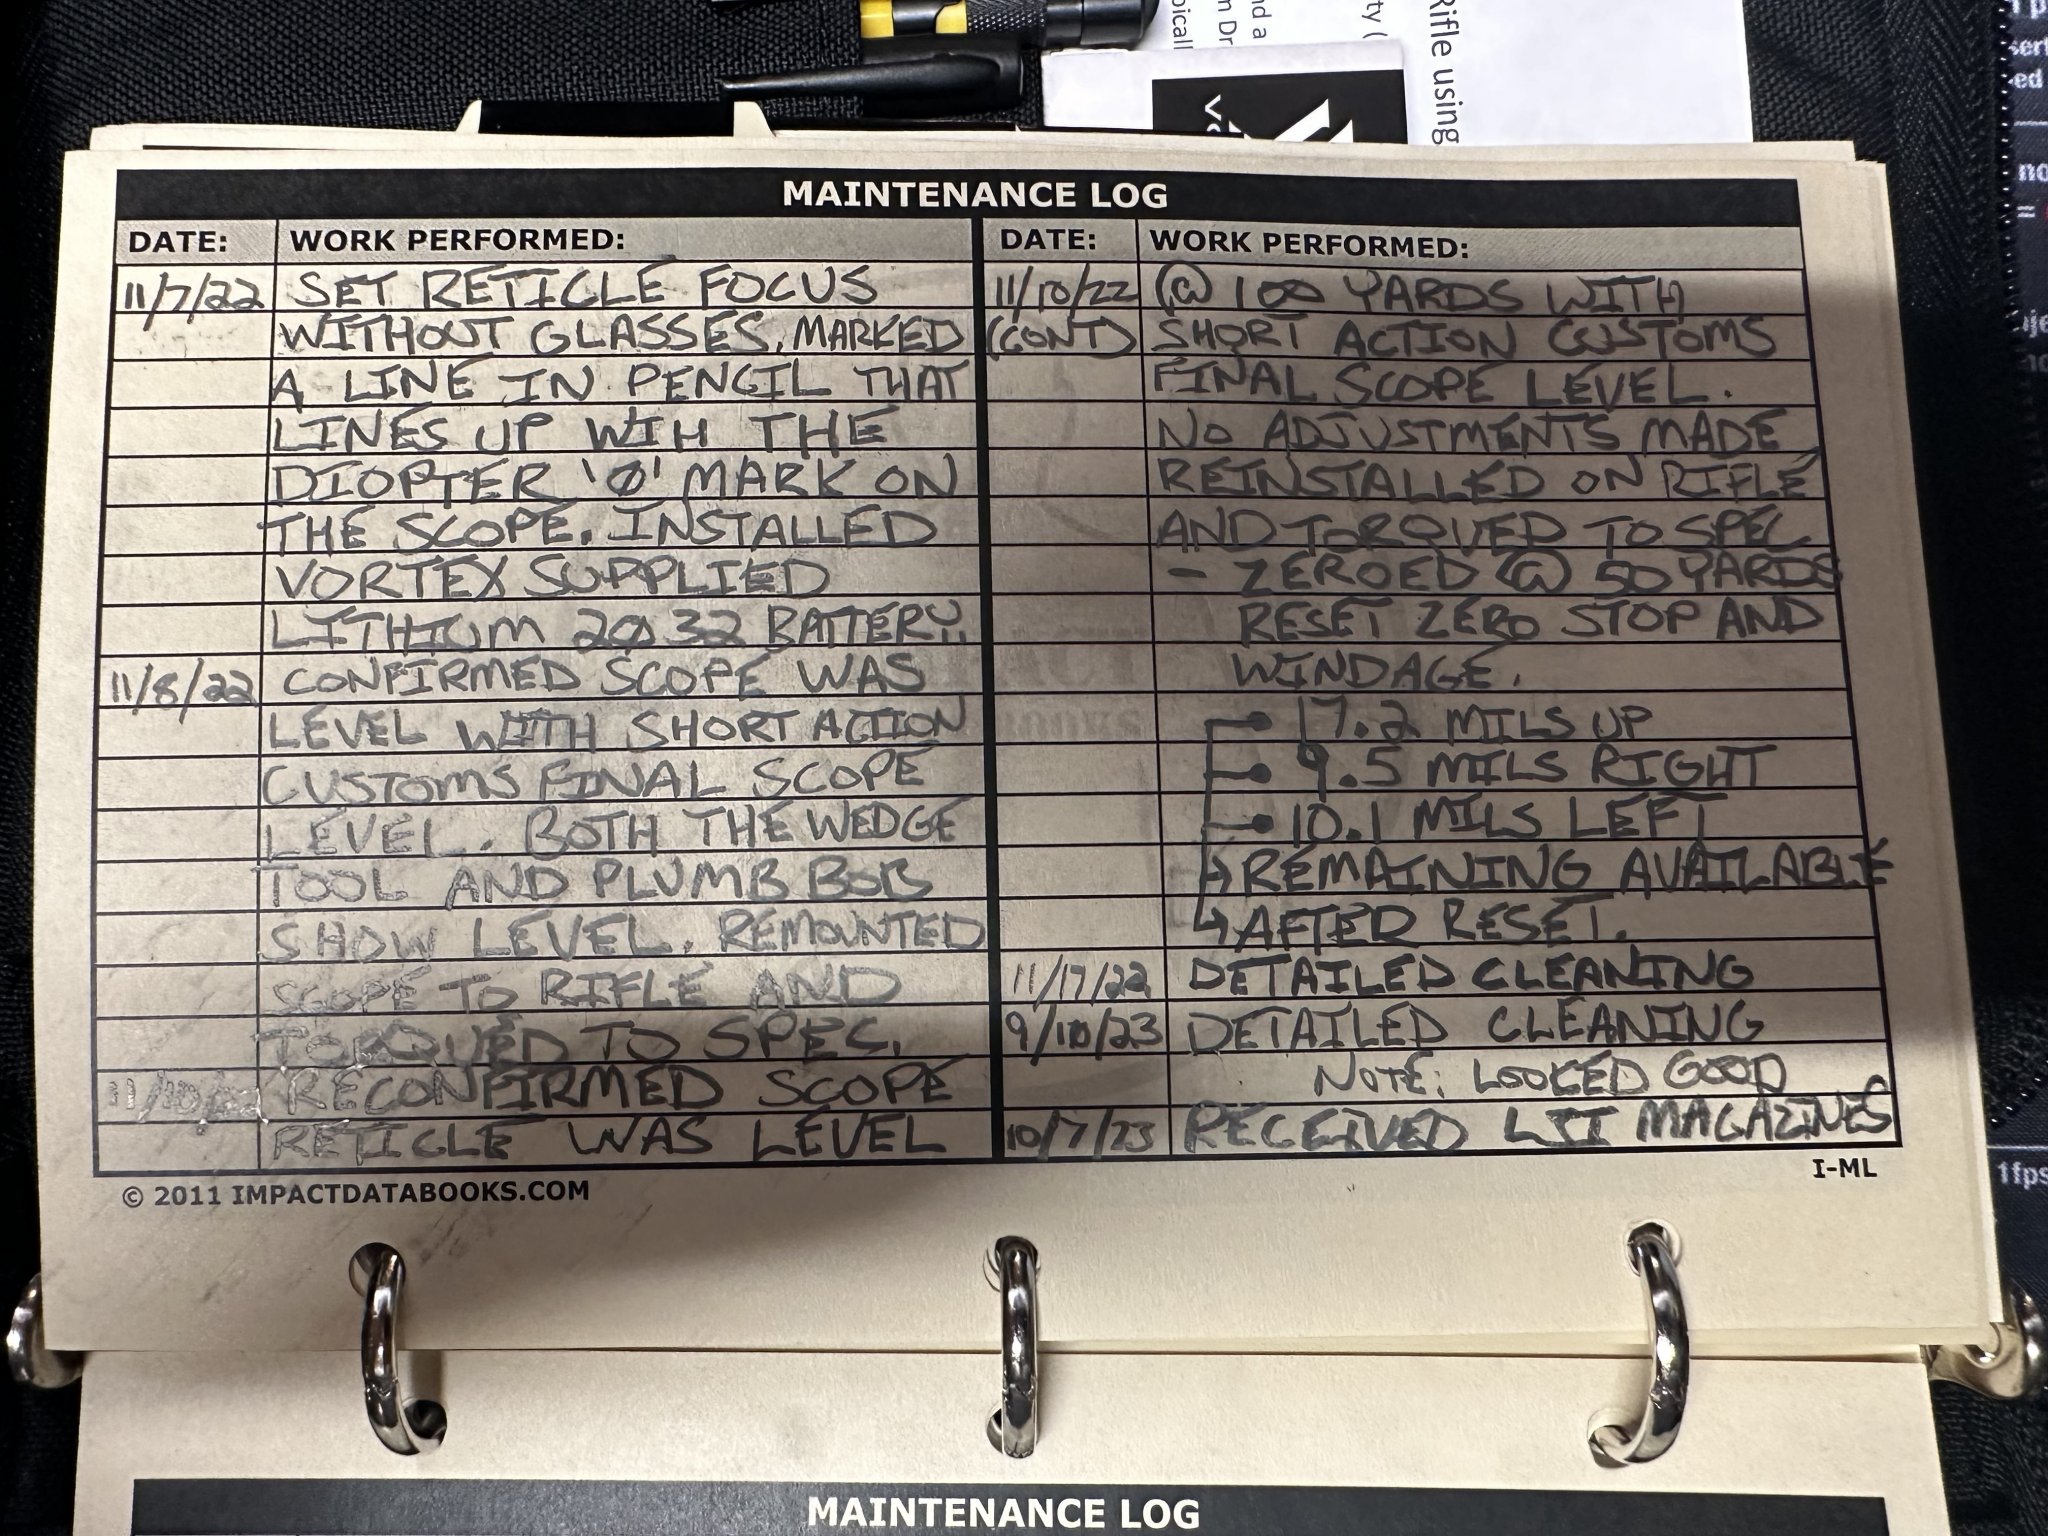 Rifle using
MAINTENANCE LOG
DATE: WORK PERFORMED:
11/7/22 SET RETICLE FOCUS
WITHOUT GLASSES, MARKED
A LINE IN PENCIL THAT
LINES UP WITH THE
DIOPTER '0' MARK ON
THE SCOPE. INSTALLED
VORTEX SUPPLIED
LITHIUM 2032 BATTERY.
11/8/22 CONFIRMED SCOPE WAS
LEVEL WITH SHORT ACTION
CUSTOMS FINAL SCOPE
LEVEL. BOTH THE WEDGE
TOOL AND PLUMB BOB
SHOW LEVEL. REMOUNTED
SCOPE TO RIFLE AND
TORQUED TO SPEC.
RECONFIRMED SCOPE
RETICLE WAS LEVEL
DATE: WORK PERFORMED:
11/10/22 @ 100 YARDS WITH
(CONT) SHORT ACTION CUSTOMS
FINAL SCOPE LEVEL.
NO ADJUSTMENTS MADE
REINSTALLED ON RIFLE
AND TORQUED TO SPEC
- ZEROED @ 50 YARDS
RESET ZERO STOP AND
WINDAGE.
17.2 MILS UP
9.5 MILS RIGHT
10.1 MILS LEFT
REMAINING AVAILABLE
AFTER RESET.
11/17/22 DETAILED CLEANING
9/10/23 DETAILED CLEANING
NOTE: LOOKED GOOD
10/7/23 RECEIVED MAGAZINES
© 2011 IMPACTDATABOOKS.COM
I-ML
1fps
MAINTENANCE LOG